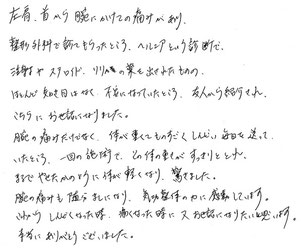 左肩、首から腕にかけての痛みがあり、
整形外科で診てもらったところ、ヘルニアという診断で、
注射や ステロイド、リリカの薬を出されたものの、
ほとんど効き目はなく、不安になっていたところ、友人から紹介され、
こちらに お世話になりました。
腕の痛みだけでなく、体が重くてものすごくしんどい毎日を送って
いたところ、一回の施術で、その体の重さがすっきりととれ、
まるでやせたかのように体が軽くなり、驚きました。
腕の痛みも随分ましになり、気功整体の力に感動しています。
これからもしんどくなった時、痛くなった時に又お世話になりたいと思います。
本当にありがとうございました。